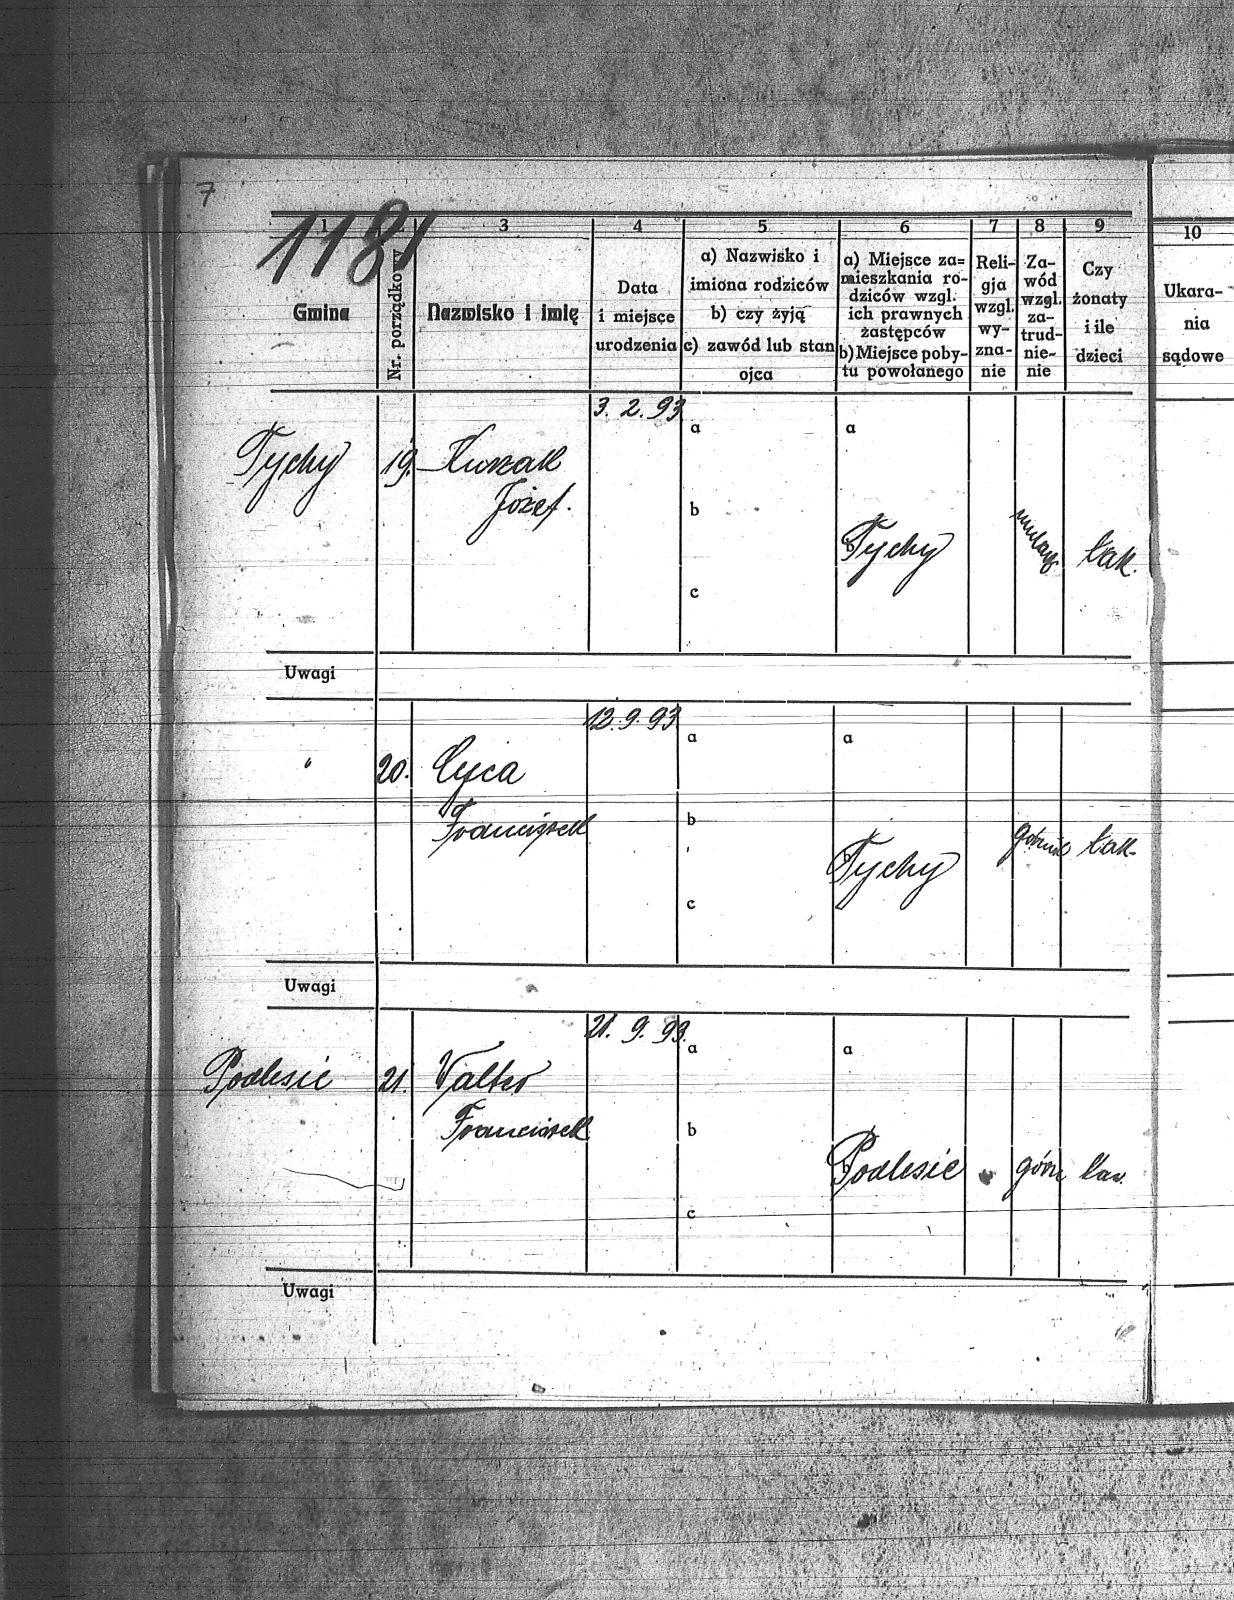 7
1181
1
3
4
5
6
7
8
9
10
Gmina
Nr. porządkowy
Nazwisko i imię
Data
i miejsce
urodzenia
a) Nazwisko i
imiona rodziców
b) czy żyją
c) zawód lub stan
ojca
a) Miejsce za=
mieszkania ro-
dziców wzgl.
ich prawnych
zastępców
b) Miejsce poby-
tu powołanego
Reli-
gja
wzgl.
wy-
zna-
nie
Za-
wód
wzgl.
za-
trud-
nie-
nie
Czy
żonaty
i ile
dzieci
Ukara-
nia
sądowe
3. 2. 93
a
a
Tychy
19.
Józef.
b
b
Tychy
tak.
c
Uwagi
12. 9. 93
a
a
"
20.
Cyca
Franciszek
b
b
Tychy
górnik
tak.
c
Uwagi
21. 9. 93.
a
a
Podlesie
21.
Walter
Franciszek
b
b
Podlesie
górn
c
Uwagi